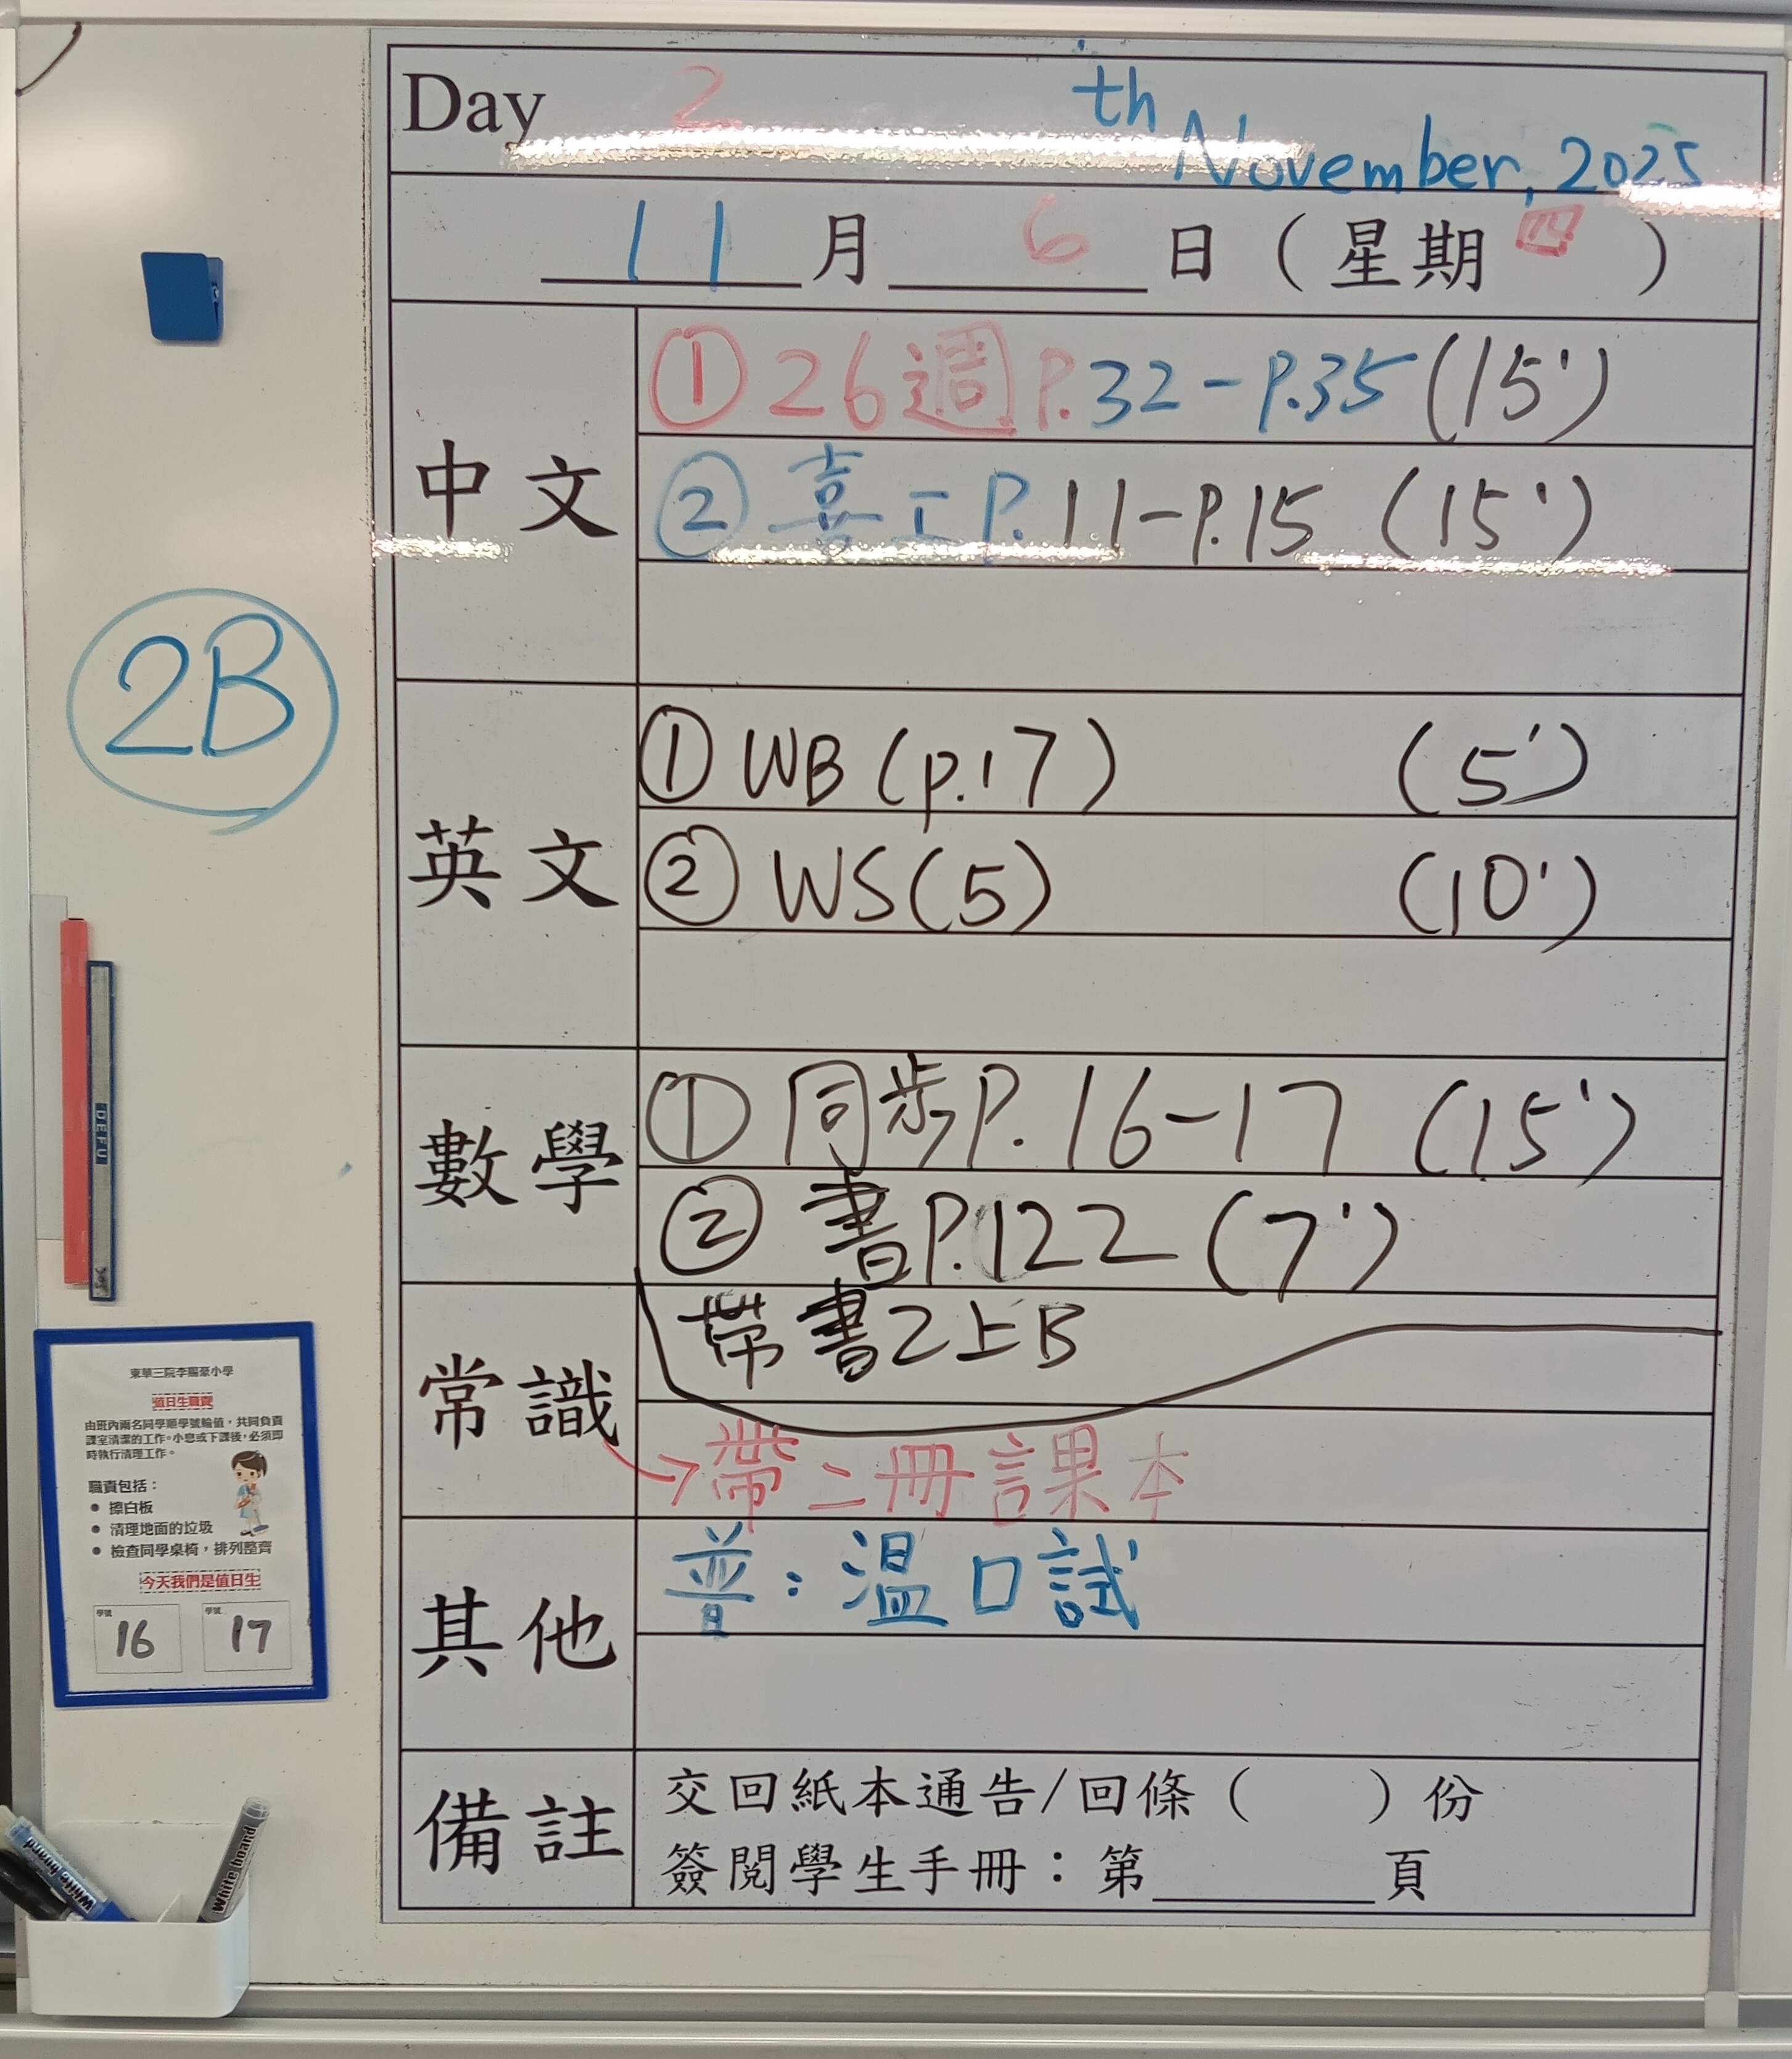 Day 2 th November, 2025
11 月 6 日 ( 星期 四 )
中文
① 26週 P.32 - P.35 (15')
② 喜工 P.11-P.15 (15')
2B
英文
① WB (p.17) (5')
② WS(5) (10')
數學
① 同步P.16-17 (15')
② 書P.122 (7')
帶書2上B
常識
→帶二冊課本
其他
普：溫口試
備註
交回紙本通告/回條 ( ) 份
簽閱學生手冊：第 頁
DEFU
東華三院李賜豪小學
值日生職責
由班內兩名同學順學號輪值，共同負責
課室清潔的工作。小息或下課後，必須即
時執行清理工作。
職責包括：
● 擦白板
● 清理地面的垃圾
● 檢查同學桌椅，排列整齊
今天我們是值日生
學號 16 學號 17
White board
White board